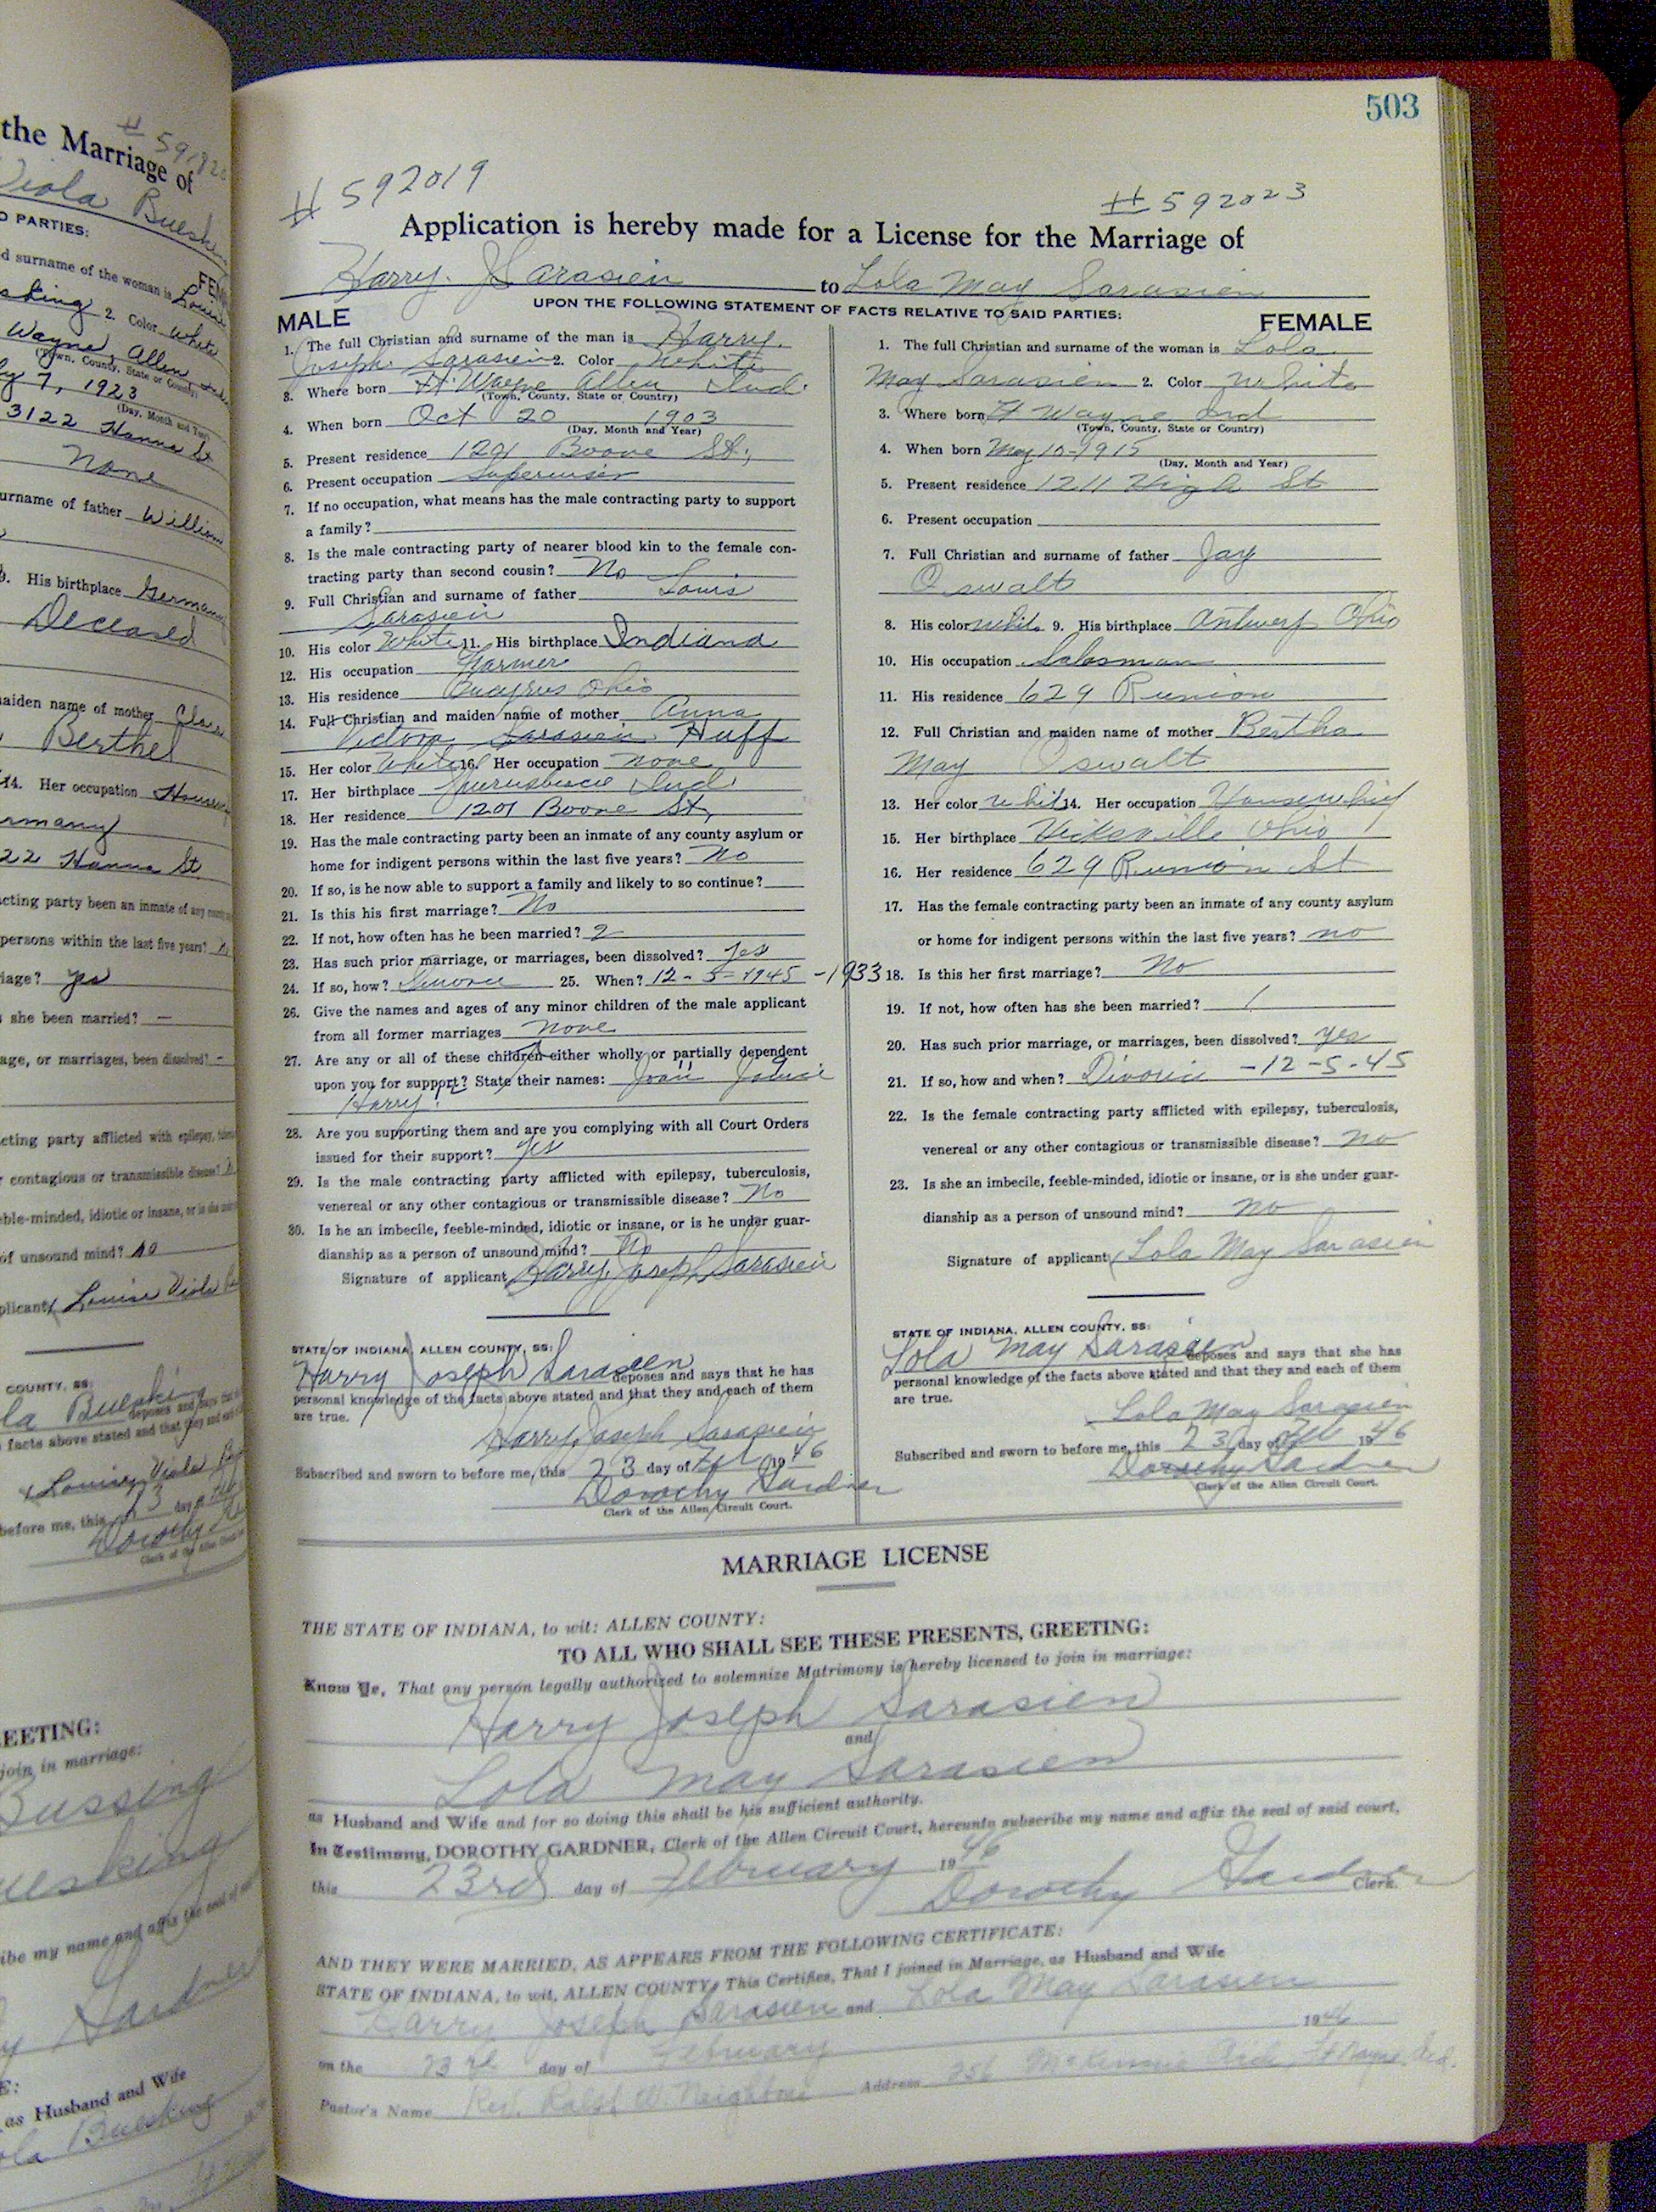 the Marriage of
Viola
D PARTIES:
d surname of the woman is
2. Color White
Wayne, Allen
(Town, County, State or Country)
7, 1923
(Day, Month and Year)
3122 Hanna St
None
urname of father William
9. His birthplace Germany
Deceased
maiden name of mother
Berthel
14. Her occupation
22 Hanna St
acting party been an inmate of any
persons within the last five years?
iage? yes
s she been married? —
age, or marriages, been dissolved? -
cting party afflicted with epilepsy,
contagious or transmissible disease?
ble-minded, idiotic or insane, or is
of unsound mind? no
plicant Louise Viola
COUNTY, SS:
la Bueskin
deposes and says
facts above stated and that they and
Louise Viola
before me, this
EETING:
join in marriage:
Bussing
ueskin
ibe my name and affix the seal of
Gardner
E:
as Husband and Wife
ola Buesking
503
# 592019
# 592023
Application is hereby made for a License for the Marriage of
Harry. J Sarasien to Lola May Sarasien
UPON THE FOLLOWING STATEMENT OF FACTS RELATIVE TO SAID PARTIES:
MALE
1. The full Christian and surname of the man is Harry.
Joseph Sarasien 2. Color White
3. Where born Ft Wayne Allen Ind.
(Town, County, State or Country)
4. When born Oct 20 1903
(Day, Month and Year)
5. Present residence 1201 Boone St.,
6. Present occupation Supervisor
7. If no occupation, what means has the male contracting party to support
a family?
8. Is the male contracting party of nearer blood kin to the female con-
tracting party than second cousin? No
9. Full Christian and surname of father Louis
Sarasien
10. His color White 11. His birthplace Indiana
12. His occupation Farmer
13. His residence Bucyrus Ohio
14. Full Christian and maiden name of mother Anna
Victora Sarasien Huff
15. Her color White 16. Her occupation none
17. Her birthplace Ind.
18. Her residence 1201 Boone St,
19. Has the male contracting party been an inmate of any county asylum or
home for indigent persons within the last five years? No
20. If so, is he now able to support a family and likely to so continue?
21. Is this his first marriage? No
22. If not, how often has he been married? 2
23. Has such prior marriage, or marriages, been dissolved? Yes
24. If so, how? Divorce 25. When? 12-5-1945 -1933
26. Give the names and ages of any minor children of the male applicant
from all former marriages none
27. Are any or all of these children either wholly or partially dependent
upon you for support? State their names: Joan 11 Janice
Harry 12
28. Are you supporting them and are you complying with all Court Orders
issued for their support? Yes
29. Is the male contracting party afflicted with epilepsy, tuberculosis,
venereal or any other contagious or transmissible disease? No
30. Is he an imbecile, feeble-minded, idiotic or insane, or is he under guar-
dianship as a person of unsound mind? No
Signature of applicant Harry Joseph Sarasien
STATE OF INDIANA, ALLEN COUNTY, SS:
Harry Joseph Sarasien deposes and says that he has
personal knowledge of the facts above stated and that they and each of them
are true.
Harry Joseph Sarasien
Subscribed and sworn to before me, this 23 day of Feb 1946
Dorothy Gardner
Clerk of the Allen Circuit Court.
FEMALE
1. The full Christian and surname of the woman is Lola
May Sarasien 2. Color White
3. Where born Ft Wayne Ind
(Town, County, State or Country)
4. When born May 10-1915
(Day, Month and Year)
5. Present residence 1211 High St
6. Present occupation
7. Full Christian and surname of father Jay
Oswalt
8. His color white 9. His birthplace Antwerp Ohio
10. His occupation Salesman
11. His residence 629 Runion
12. Full Christian and maiden name of mother Bertha
May Oswalt
13. Her color white 14. Her occupation Housewhief
15. Her birthplace Hicksville Ohio
16. Her residence 629 Runion St
17. Has the female contracting party been an inmate of any county asylum
or home for indigent persons within the last five years? no
18. Is this her first marriage? No
19. If not, how often has she been married? 1
20. Has such prior marriage, or marriages, been dissolved? yes
21. If so, how and when? Divorce -12-5-45
22. Is the female contracting party afflicted with epilepsy, tuberculosis,
venereal or any other contagious or transmissible disease? no
23. Is she an imbecile, feeble-minded, idiotic or insane, or is she under guar-
dianship as a person of unsound mind? no
Signature of applicant Lola May Sarasien
STATE OF INDIANA, ALLEN COUNTY, SS:
Lola May Sarasien deposes and says that she has
personal knowledge of the facts above stated and that they and each of them
are true.
Lola May Sarasien
Subscribed and sworn to before me, this 23 day of Feb 1946
Dorothy Gardner
Clerk of the Allen Circuit Court.
MARRIAGE LICENSE
THE STATE OF INDIANA, to wit: ALLEN COUNTY:
TO ALL WHO SHALL SEE THESE PRESENTS, GREETING:
Know Ye, That any person legally authorized to solemnize Matrimony is hereby licensed to join in marriage:
Harry Joseph Sarasien
and
Lola May Sarasien
as Husband and Wife and for so doing this shall be his sufficient authority.
In Testimony, DOROTHY GARDNER, Clerk of the Allen Circuit Court, hereunto subscribe my name and affix the seal of said court,
this 23rd day of February 1946
Dorothy Gardner Clerk.
AND THEY WERE MARRIED, AS APPEARS FROM THE FOLLOWING CERTIFICATE:
STATE OF INDIANA, to wit, ALLEN COUNTY, This Certifies, That I joined in Marriage, as Husband and Wife
Harry Joseph Sarasien and Lola May Sarasien
on the 23rd day of February 1946
Pastor's Name Rev. Ralph W. Neighbour Address 256 McKinnie Ft Wayne, Ind.